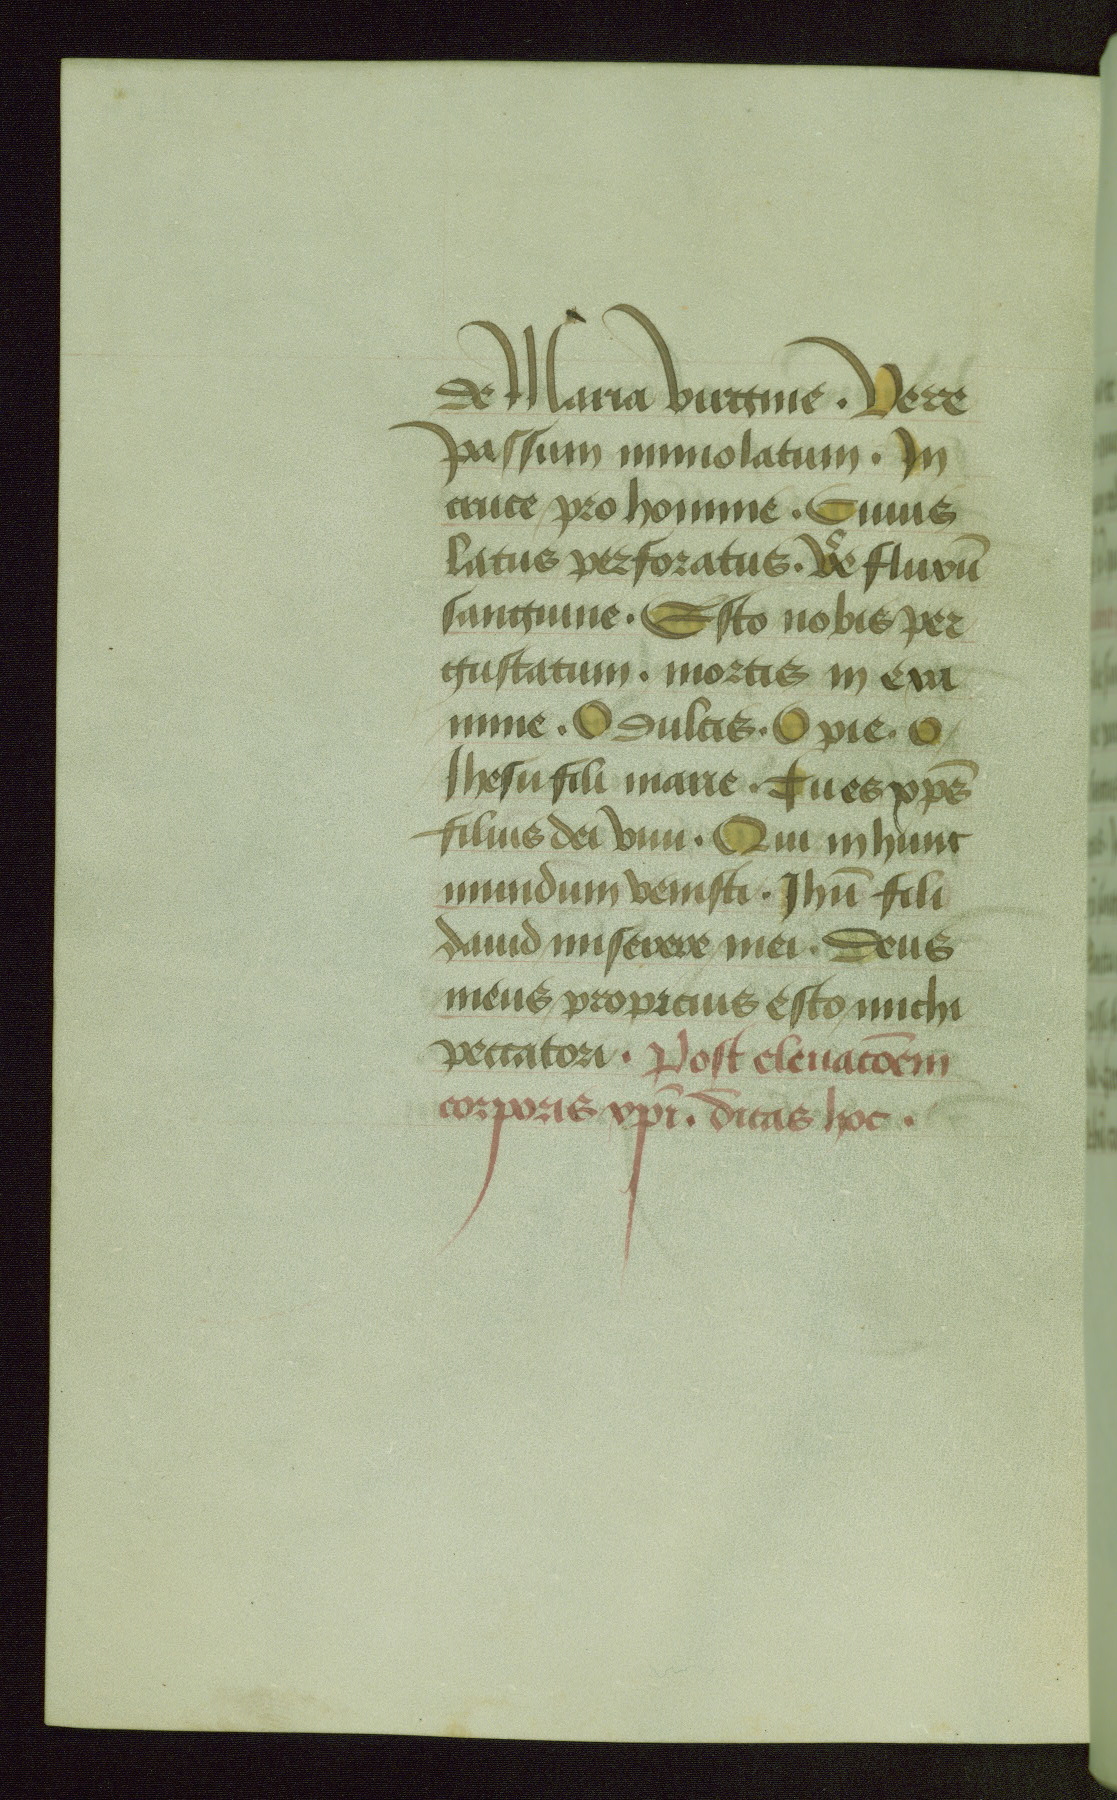 de Maria virgine . Vere
passum immolatum . In
cruce pro homine . Cuius
latus perforatus . Vͤe fluxū
sanguine . Esto nobis per
gustatum . mortis in exa
mine . O dulcis . O pie . o
Ihesu fili marie . Tu es xp̄s
filius dei viui . Qui in hunc
mundum venisti . Jhū fili
dauid miserere mei . Deus
meus propicius esto michi
peccatori . Post eleuacōem
corporis xp̄i . dicas hoc .